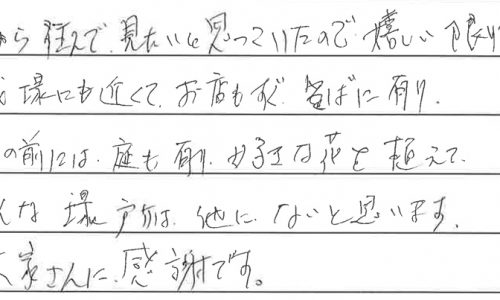 から住んで、見たいと思っていたので嬉しい限り
場にも近くて、お店もすぐ、そばに有り、
の前には、庭も有り、好きな花を植えて
んな場所は、他にないと思います。
大家さんに、感謝です。